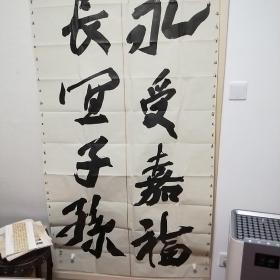 永受嘉福
長宜子孫